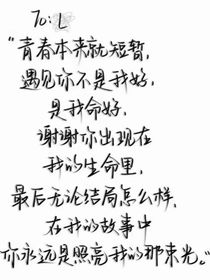 To: L
"青春本来就短暂,
遇见你不是我好,
是我命好,
谢谢你出现在
我的生命里,
最后无论结局怎么样,
在我的故事中
你永远是照亮我的那束光。"